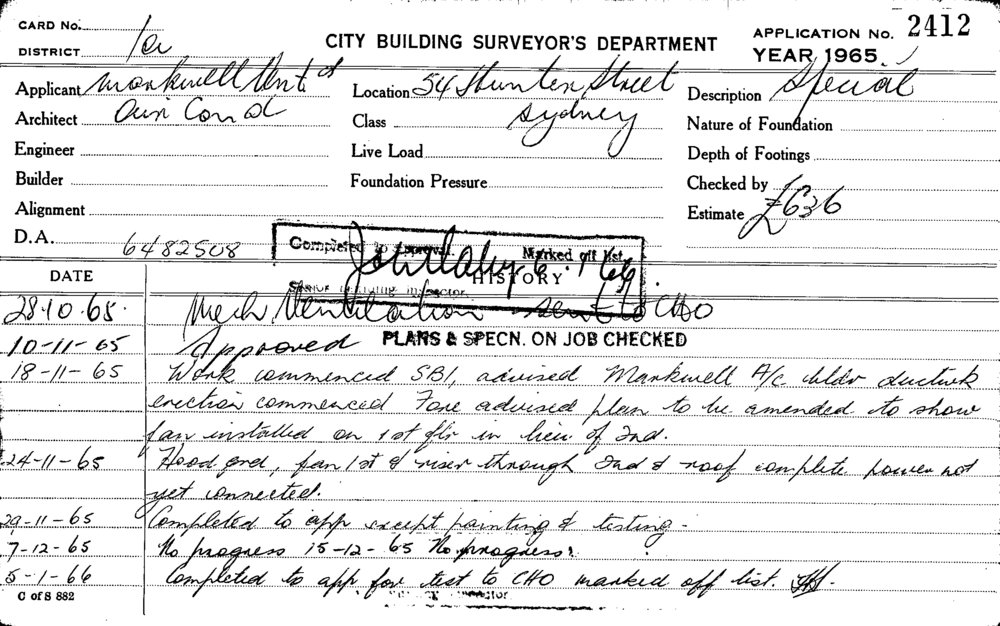 CARD No.
DISTRICT 1a
CITY BUILDING SURVEYOR'S DEPARTMENT
APPLICATION No. 2412
YEAR 1965
Applicant Markwell Vent
Location 54 Hunter Street
Description Special
Architect Air Con
Class Sydney
Nature of Foundation
Engineer
Live Load
Depth of Footings
Builder
Foundation Pressure
Checked by
Alignment
Estimate £636
D.A. 6482508
Completed to approval. Marked off list.
6.1.66
Senior Building Inspector
DATE
HISTORY
28.10.65. Mech. Ventilation sent to CHO
10-11-65 Approved PLANS & SPECN. ON JOB CHECKED
18-11-65 Work commenced SBI, advised Markwell A/c bldr ductwk
erection commenced Fore advised plan to be amended to show
fan installed on 1st flr in lieu of 2nd.
24-11-65 Hood grd, fan 1st & riser through 2nd & roof complete power not
yet connected.
29-11-65 Completed to app except painting & testing -
7-12-65 No progress 15-12-65 No progress.
5-1-66 Completed to app for test to CHO marked off list.
C of S 882